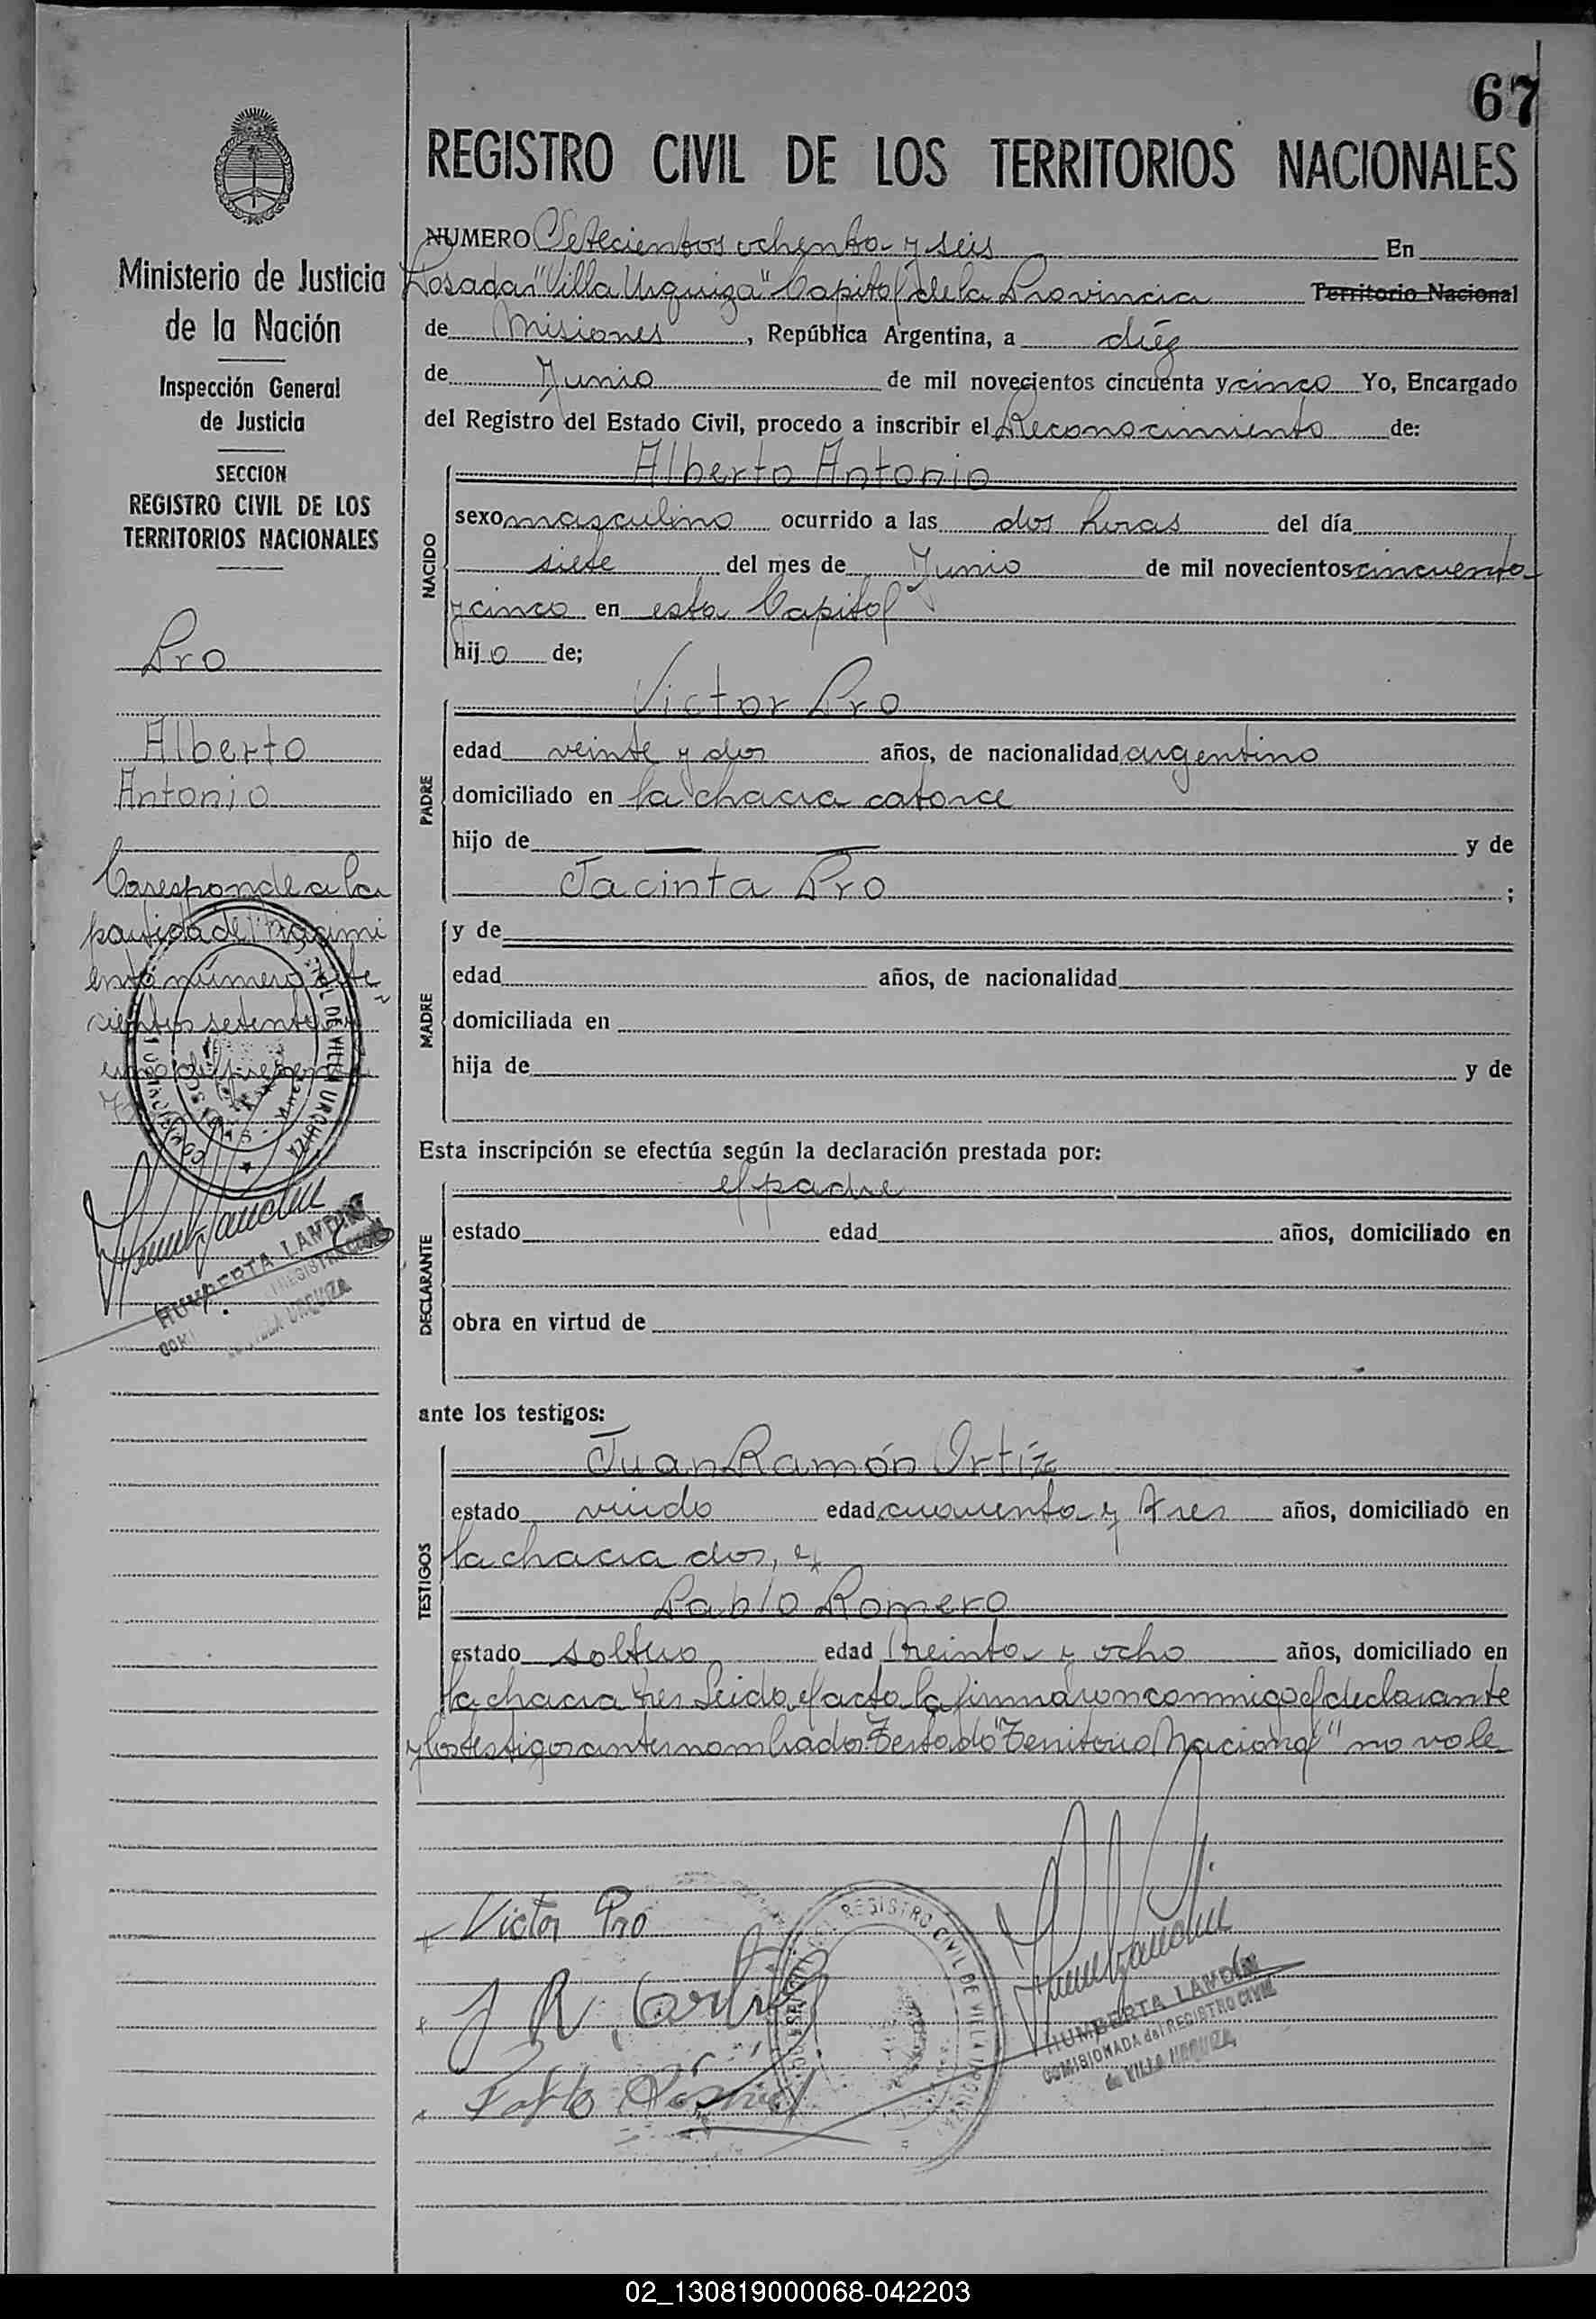 67
REGISTRO CIVIL DE LOS TERRITORIOS NACIONALES
Ministerio de Justicia
de la Nación
Inspección General
de Justicia
SECCION
REGISTRO CIVIL DE LOS
TERRITORIOS NACIONALES
Pro
Alberto
Antonio
Corresponde a la
partida de Nacimi
ento número sete
cientos setenta y
NUMERO Setecientos ochenta y seis En
Posadas "Villa Urquiza" Capital de la Provincia Territorio Nacional
de Misiones, República Argentina, a diéz
de Junio de mil novecientos cincuenta y cinco Yo, Encargado
del Registro del Estado Civil, procedo a inscribir el Reconocimiento de:
NACIDO
Alberto Antonio
sexo masculino ocurrido a las dos horas del día
siete del mes de Junio de mil novecientos cincuenta
y cinco en esta Capital
hijo de;
PADRE
Victor Pro
edad veinte y dos años, de nacionalidad argentino
domiciliado en la chacra catorce
hijo de — — y de
Jacinta Pro ;
MADRE
y de
edad años, de nacionalidad
domiciliada en
hija de y de
Esta inscripción se efectúa según la declaración prestada por:
DECLARANTE
el padre
estado edad años, domiciliado en
obra en virtud de
ante los testigos:
TESTIGOS
Juan Ramón Ortíz
estado viudo edad cuarenta y tres años, domiciliado en
la chacra dos, y
Pablo Romero
estado soltero edad treinta y ocho años, domiciliado en
la chacra tres Leido el acta la firmaron conmigo el declarante
y los testigos antes nombrados Testado "Territorio Nacional" no vale
Victor Pro
J R
Pablo
REGISTRO CIVIL DE VILLA URQUIZA
HUMBERTA LANDIN
COMISIONADA del REGISTRO CIVIL
de VILLA URQUIZA
DE VILLA URQUIZA
HUMBERTA
VILLA URQUIZA
02_130819000068-042203